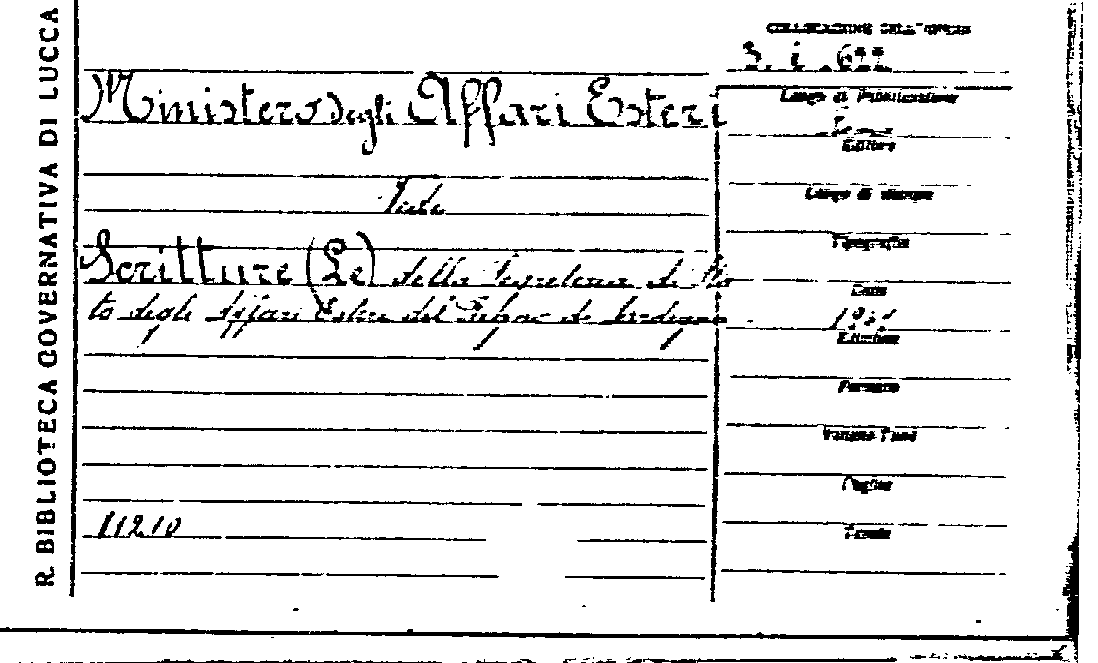 R. BIBLIOTECA GOVERNATIVA DI LUCCA
COLLOCAZIONE DELL'OPERA
Ministero degli Affari Esteri
Luogo di Pubblicazione
Editore
Vedi
Luogo di stampa
Tipografia
Scritture (Le) della Segreteria di Sta
to degli Affari Esteri del Regno di Sardegna
Data
Edizione
Formato
Volume
Pagine
11210